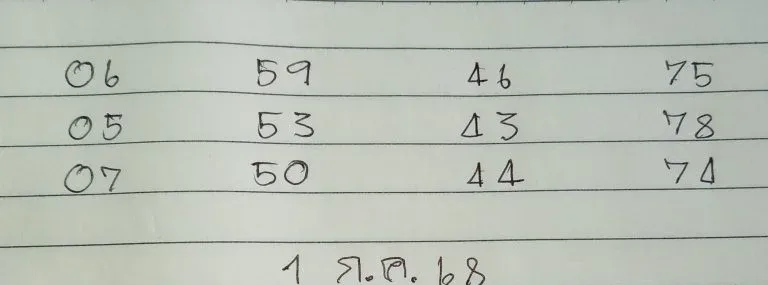 06 59 46 75
05 53 43 78
07 50 44 74
1 ก.ค. 68